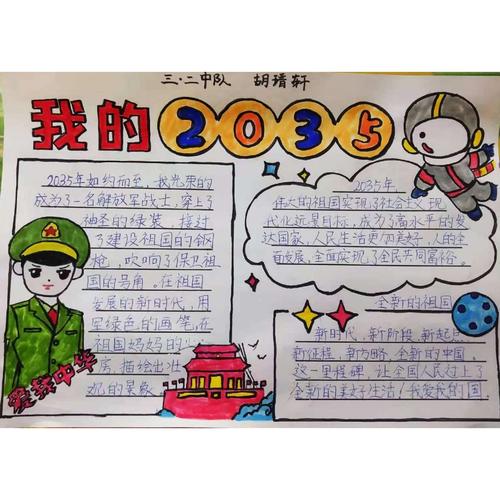 三·二中队 胡瑨轩
我的2035
2035年如约而至,我光荣的
成为了一名解放军战士,穿上了
神圣的绿装,接过
了建设祖国的钢
枪,吹响了保卫祖
国的号角。在祖国
发展的新时代,用
军绿色的画笔,在
祖国妈妈的
房,描绘出壮
观的景致
爱我中华
2035年,
伟大的祖国实现了社会主义现
代化远景目标,成为了高水平的发
达国家,人民生活更加美好,人的全
面发展,全面实现了全民共同富裕。
全新的祖国
新时代,新阶段,新起点
新征程,新方略,全新的中国,
这一里程碑,让全国人民过上了
全新的美好生活!我爱我的国